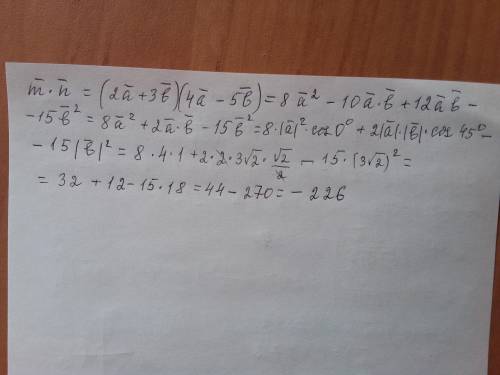 m̄·n̄ = (2ā+3b̄)(4ā - 5b̄) = 8ā² - 10ā·b̄ + 12āb̄ -
- 15b̄² = 8ā² + 2ā·b̄ - 15b̄² = 8·|ā|²·cos0° + 2|ā|·|b̄|·cos 45° -
- 15|b̄|² = 8·4·1 + 2·2·3√2·√2/2 - 15·(3√2)² =
= 32 + 12 - 15·18 = 44 - 270 = - 226